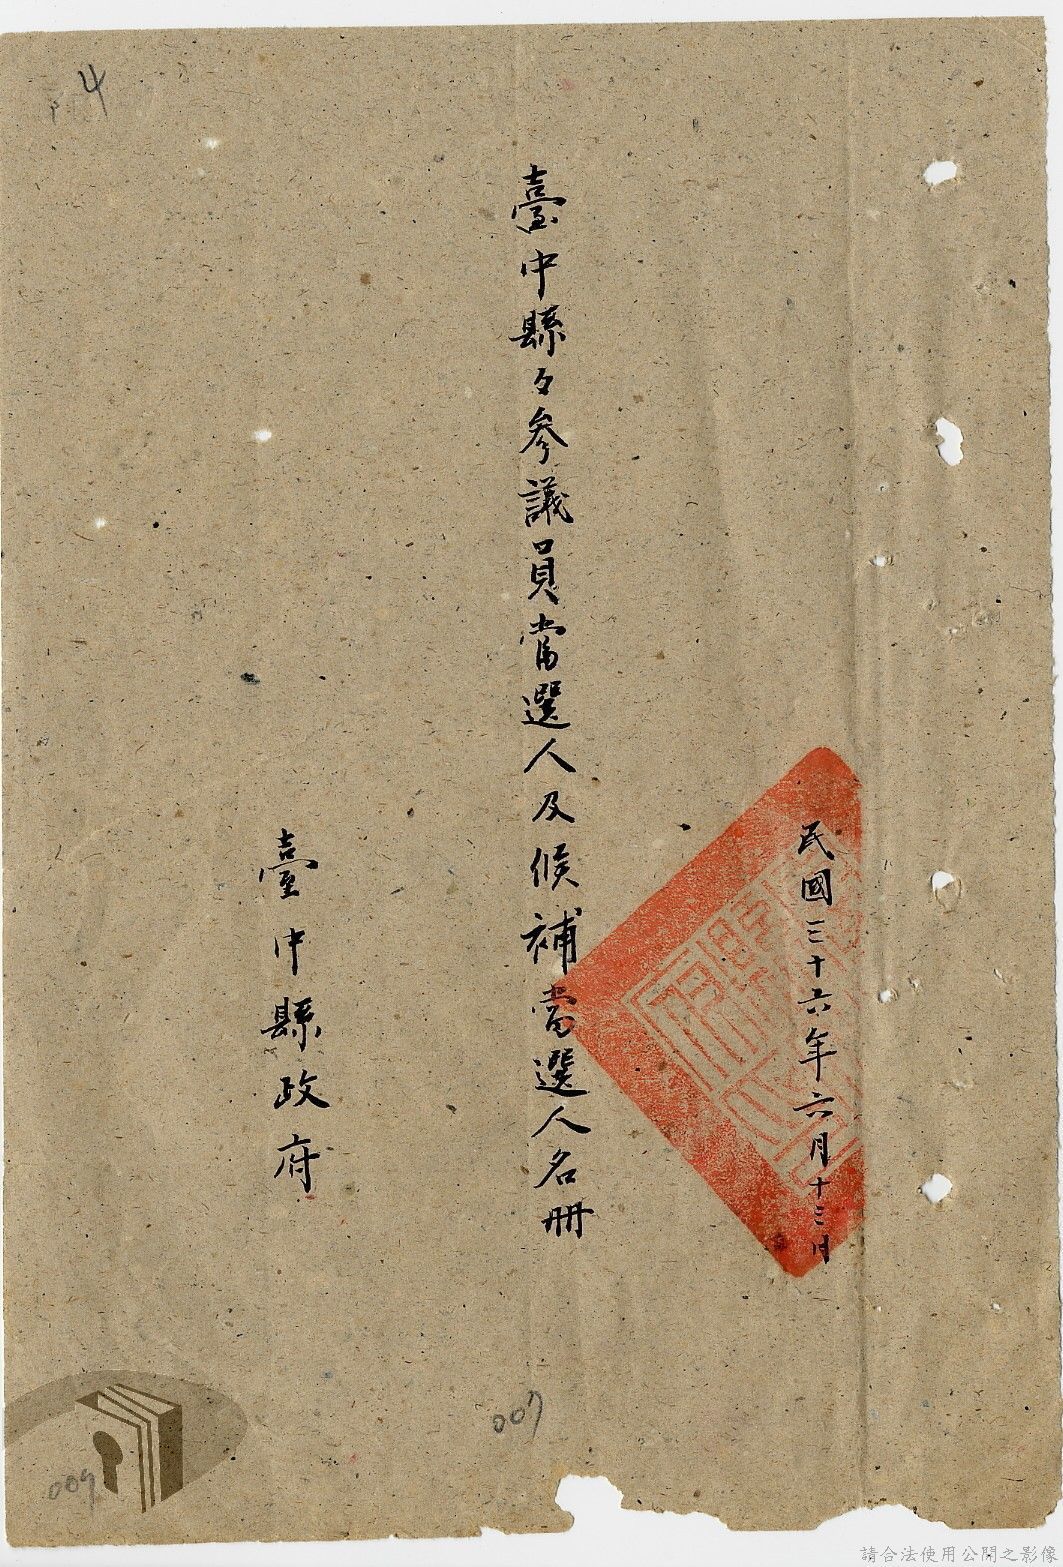 民國三十六年六月十三日
臺中縣々參議員當選人及候補當選人名冊
臺中縣政府
4
007
009
請合法使用公開之影像